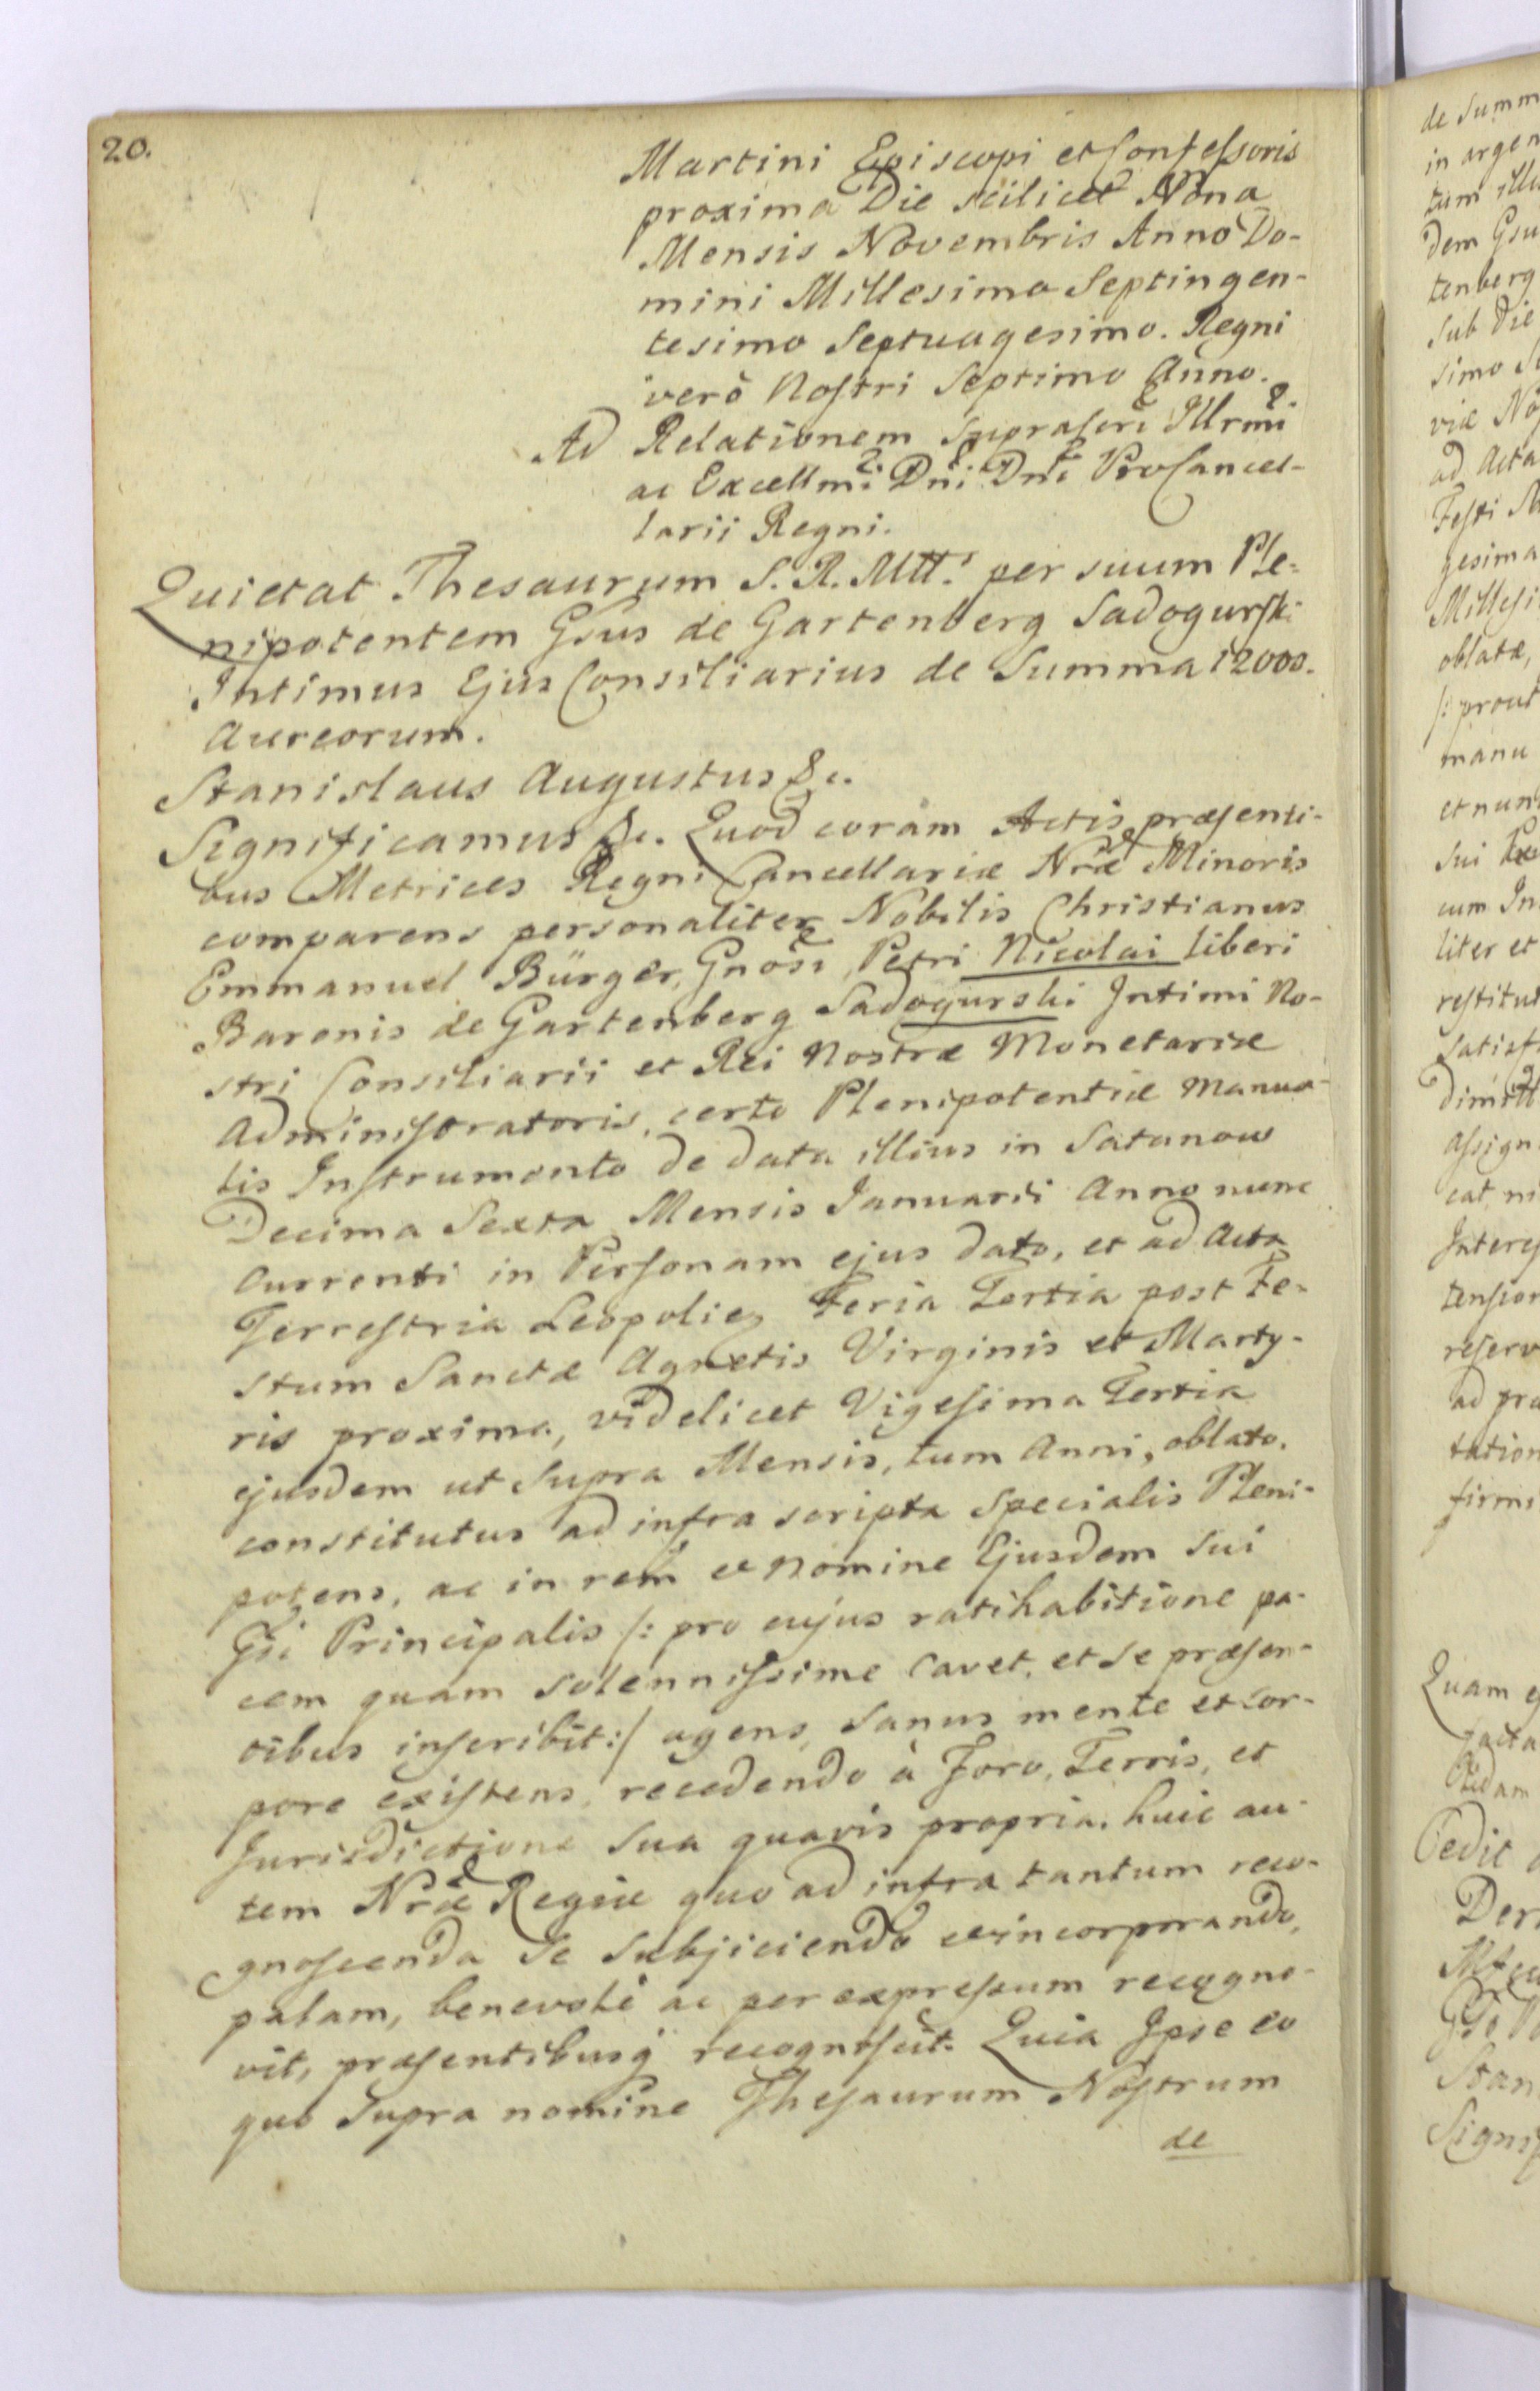 20.
Martini Episcopi et Confessoris
proxima Die scilicet Nona
Mensis Novembris Anno Do-
mini Millesimo Septingen-
tesimo Septuagesimo. Regni
verò Nostri Septimo Anno.
Ad Relationem suprascri Illrmi
ac Excellmi Dni Dni ProCancel-
larii Regni.
Quietat Thesaurum S. R. Mtt. per suum Ple-
nipotentem Gsus de Gartenberg Sadogurski
Intimus Ejus Consiliarius de Summa 12000.
Aureorum.
Stanislaus Augustus &c.
Significamus &c. Quod coram Actis præsenti-
bus Metrices Regni Cancellariæ Nræ Minoris
comparens personaliter Nobilis Christianus
Emmanuel Bürger, Gnosi Petri Nicolai liberi
Baronis de Gartenberg Sadogurski Intimi No-
stri Consiliarii et Rei Nostræ Monetariæ
Administratoris, certo Plenipotentiæ Manua-
lis Instrumento de data illius in Satanow
Decima Sexta Mensis Januarii Anno nunc
Currenti in Personam ejus dato, et ad Acta
Terrestria Leopolien Feria Tertia post Fe-
stum Sanctæ Agnetis Virginis et Marty-
ris proxima, videlicet Vigesima Tertia
ejusdem ut Supra Mensis, tum Anni, oblato.
constitutus ad infra scripta Specialis Pleni-
potens, ac in rem et nomine Ejusdem Sui
Gsi Principalis /: pro cujus ratihabitione pa-
cem quam solennissime Cavet, et se præsen-
tibus inscribit :/ agens, Sanus mente et Cor-
pore existens, recedendo à Foro, Terris, et
Jurisdictione Sua quavis propria, huic au-
tem Nræ Regiæ quo ad infra tantum reco-
gnoscenda Se Subjiciendo et incorporando,
palam, benevolè ac per expressum recogno-
vit, præsentibusq recognoscit. Quia Ipse eo
quo Supra nomine Thesaurum Nostrum
de
de Summ
in argen
tum illu
dem Gsu
tenberg
Sub Die
simo Se
viæ No
ad Acta
Festi
gesima
Millesi
oblatæ,
/: prout
manu
et nun
sui
cum In
liter et
restitut
Satisf
dimitt
assign
eat, ni
Interes
tension
reserv
ad præ
tation
firmi
Quam
facta
Cedit
Stan
Signif